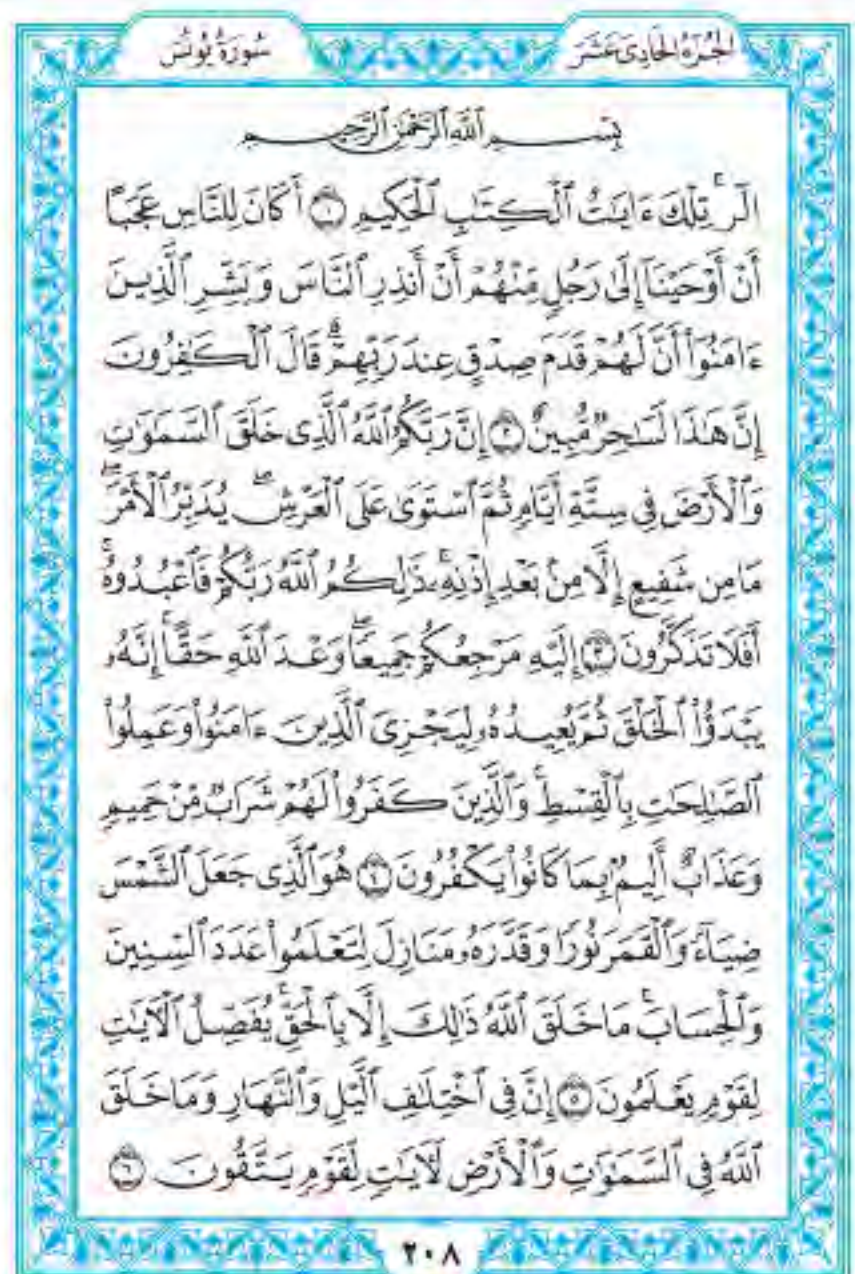 الجُزْءُ الحَادِيَ عَشَرَ
سُورَةُ يُونُسَ
بِسْمِ ٱللَّهِ ٱلرَّحْمَٰنِ ٱلرَّحِيمِ
الٓرۚ تِلْكَ ءَايَٰتُ ٱلْكِتَٰبِ ٱلْحَكِيمِ ١ أَكَانَ لِلنَّاسِ عَجَبًا
أَنْ أَوْحَيْنَآ إِلَىٰ رَجُلٍ مِّنْهُمْ أَنْ أَنذِرِ ٱلنَّاسَ وَبَشِّرِ ٱلَّذِينَ
ءَامَنُوٓا۟ أَنَّ لَهُمْ قَدَمَ صِدْقٍ عِندَ رَبِّهِمْۗ قَالَ ٱلْكَٰفِرُونَ
إِنَّ هَٰذَا لَسَٰحِرٌ مُّبِينٌ ٢ إِنَّ رَبَّكُمُ ٱللَّهُ ٱلَّذِى خَلَقَ ٱلسَّمَٰوَٰتِ
وَٱلْأَرْضَ فِى سِتَّةِ أَيَّامٍ ثُمَّ ٱسْتَوَىٰ عَلَى ٱلْعَرْشِۖ يُدَبِّرُ ٱلْأَمْرَۖ
مَا مِن شَفِيعٍ إِلَّا مِنۢ بَعْدِ إِذْنِهِۦۚ ذَٰلِكُمُ ٱللَّهُ رَبُّكُمْ فَٱعْبُدُوهُۚ
أَفَلَا تَذَكَّرُونَ ٣ إِلَيْهِ مَرْجِعُكُمْ جَمِيعًاۖ وَعْدَ ٱللَّهِ حَقًّاۚ إِنَّهُۥ
يَبْدَؤُا۟ ٱلْخَلْقَ ثُمَّ يُعِيدُهُۥ لِيَجْزِىَ ٱلَّذِينَ ءَامَنُوا۟ وَعَمِلُوا۟
ٱلصَّٰلِحَٰتِ بِٱلْقِسْطِۚ وَٱلَّذِينَ كَفَرُوا۟ لَهُمْ شَرَابٌ مِّنْ حَمِيمٍ
وَعَذَابٌ أَلِيمٌۢ بِمَا كَانُوا۟ يَكْفُرُونَ ٤ هُوَ ٱلَّذِى جَعَلَ ٱلشَّمْسَ
ضِيَآءً وَٱلْقَمَرَ نُورًا وَقَدَّرَهُۥ مَنَازِلَ لِتَعْلَمُوا۟ عَدَدَ ٱلسِّنِينَ
وَٱلْحِسَابَۚ مَا خَلَقَ ٱللَّهُ ذَٰلِكَ إِلَّا بِٱلْحَقِّۚ يُفَصِّلُ ٱلْءَايَٰتِ
لِقَوْمٍ يَعْلَمُونَ ٥ إِنَّ فِى ٱخْتِلَٰفِ ٱلَّيْلِ وَٱلنَّهَارِ وَمَا خَلَقَ
ٱللَّهُ فِى ٱلسَّمَٰوَٰتِ وَٱلْأَرْضِ لَءَايَٰتٍ لِّقَوْمٍ يَتَّقُونَ ٦
٢٠٨